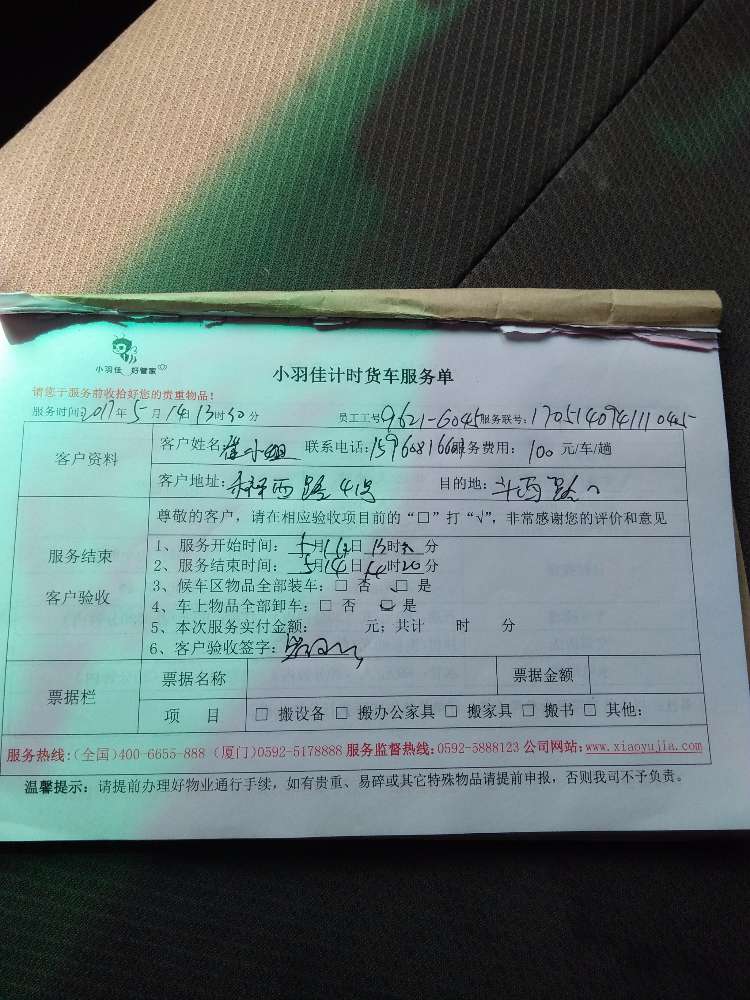 小羽佳 好管家
小羽佳计时货车服务单
请您于服务前收拾好您的贵重物品！
服务时间：2017年5月14日13时30分 员工工号：9621-6045 服务联号：
客户资料
客户姓名：崔小姐 联系电话： 服务费用：100元/车/趟
客户地址：西路41号 目的地：斗西路
服务结束
客户验收
尊敬的客户，请在相应验收项目前的“□”打“√”，非常感谢您的评价和意见
1、服务开始时间：5月14日13时 分
2、服务结束时间：5月14日14时20分
3、候车区物品全部装车：□ 否 □ 是
4、车上物品全部卸车：□ 否 □ 是
5、本次服务实付金额： 元；共计 时 分
6、客户验收签字：
票据栏
票据名称 票据金额
项 目 □ 搬设备 □ 搬办公家具 □ 搬家具 □ 搬书 □ 其他：
服务热线：(全国)400-6655-888 (厦门)0592-5178888 服务监督热线：0592-5888123 公司网站：www.xiaoyujia.com
温馨提示：请提前办理好物业通行手续，如有贵重、易碎或其它特殊物品请提前申报，否则我司不予负责。